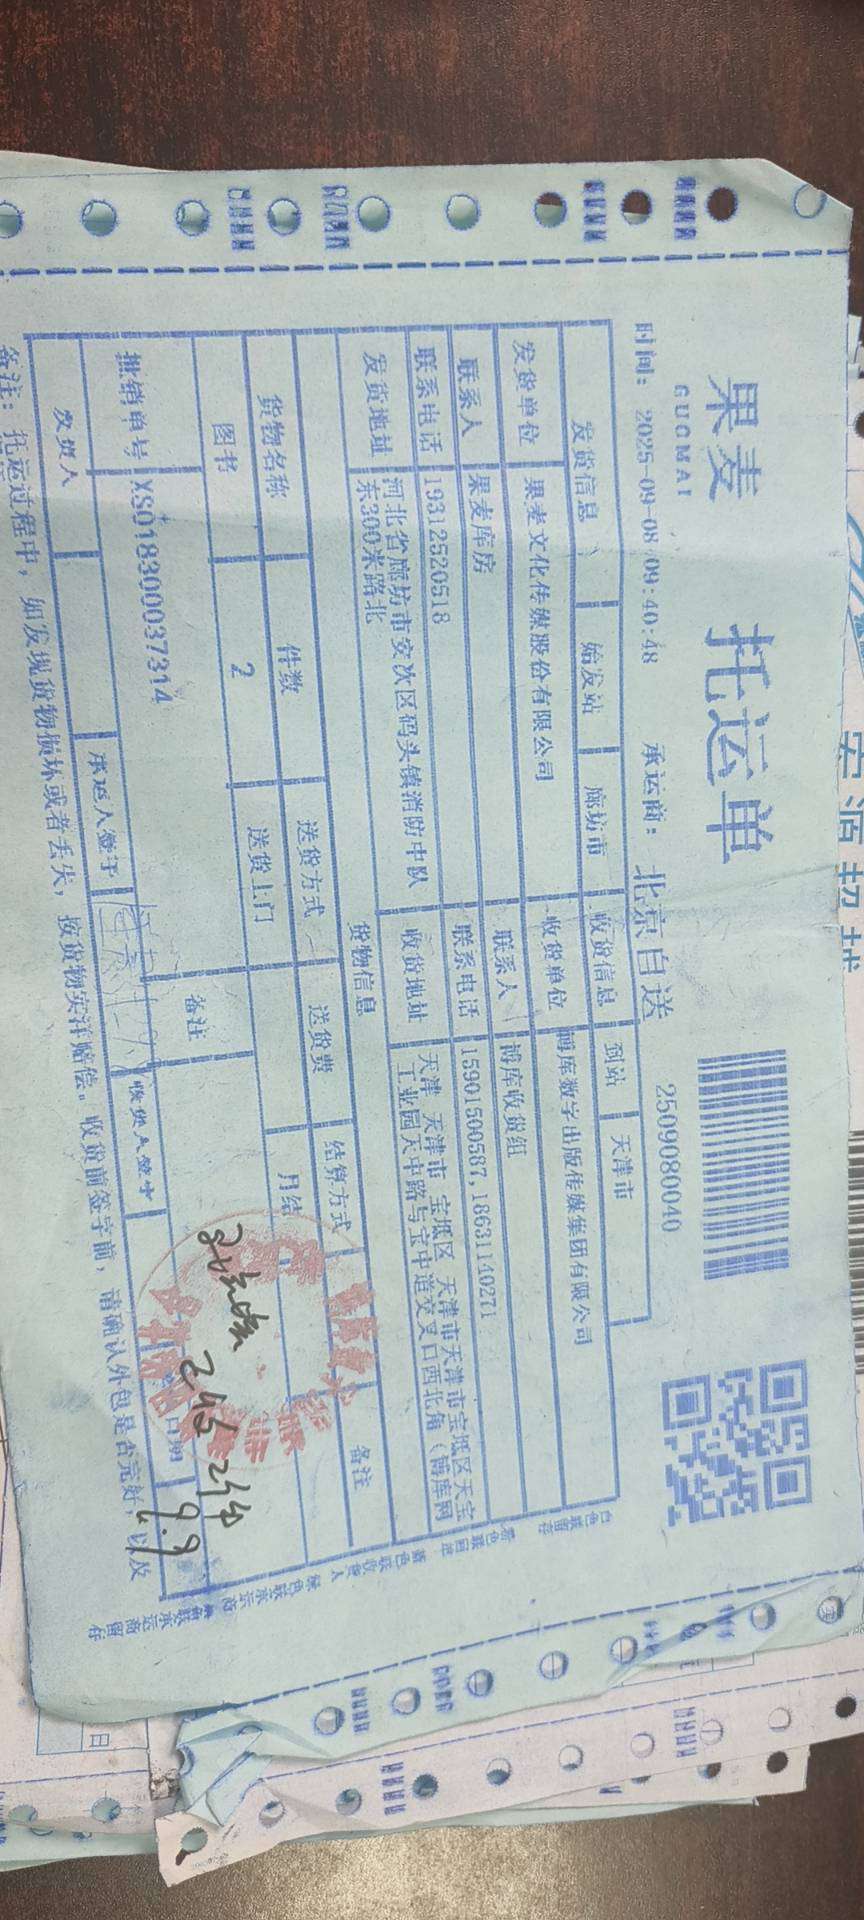 果麦
GUOMAI
托运单
2509080040
时间：2025-09-08 09:40:48 承运商：北京自送
发货信息 始发站 廊坊市 收货信息 到站 天津市
发货单位 果麦文化传媒股份有限公司 收货单位 博库数字出版传媒集团有限公司
联系人 果麦库房 联系人 博库收货组
联系电话 19312520518 联系电话 15901500587,18631140271
发货地址 河北省廊坊市安次区码头镇消防中队东300米路北 收货地址 天津 天津市 宝坻区 天津市天津市宝坻区天宝工业园天中路与宝中道交叉口西北角（博库网
货物信息
货物名称 件数 送货方式 送货费 结算方式 备注
图书 2 送货上门 月结
批销单号 XS018300037314 备注
发货人 承运人签字 收货人签字 日期 9.9
2件
备注：托运过程中，如发现货物损坏或者丢失，按货物实洋赔偿。收货前签字前，请确认外包是否完好，以及
白色联留存
绿色联承运商